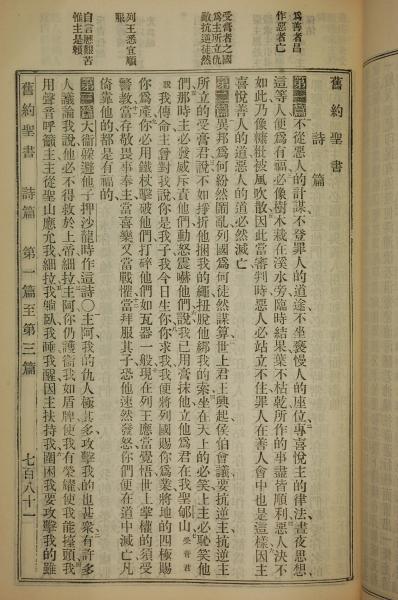 舊約聖書 詩篇
爲善者昌
作惡者亡
第一篇 不從惡人的計謀不登罪人的道途不坐褻慢人的座位專喜悅主的律法晝夜思想
這等人便爲有福必像樹木栽在溪水旁臨時結果葉不枯乾所作的事盡皆順利惡人決不
如此乃像糠粃被風吹散因此當審判時惡人必站立不住罪人在善人會中也是這樣因主
喜悅善人的道惡人的道必然滅亡
受膏者之國
爲主所立仇
敵抗逆徒然
第二篇 異邦爲何紛然鬧亂列國爲何徒然謀算世上君王興起侯伯會議要抗逆主抗逆主
所立的受膏君說不如掙折他捆我的繩扭脫他綁我的索坐在天上的必笑主必恥笑他
們那時主必發威斥責他們動怒震嚇他們說我已用膏抹他立他爲君在我聖郇山 受膏君
說我傳命主曾對我說你是我子我今日生你你求我我便將列國賜你爲業將地的四極賜
你爲產你必用鐵杖擊破他們打碎他們如瓦器一般現在列王應當覺悟世上掌權的須受
列王悉宜順
服
警教當存敬畏事奉主當喜樂又當戰懼當拜服其子恐他速然發怒你們便在道中滅亡凡
倚靠他的都是有福的
自言歷艱苦
惟主是賴
第三篇 大衞躱避他子押沙龍時作這詩〇主阿我的仇人極其多攻擊我的也甚衆有許多
人議論我說他必不得救於上帝細拉主阿你仍護衞我如盾牌使我有榮耀使我能擡頭我
用聲音呼籲主主從聖山應允我細拉我躺臥我睡我醒因主扶持我周圍困我要攻擊我的雖
舊約聖書 詩篇 第一篇至第三篇 七百八十一